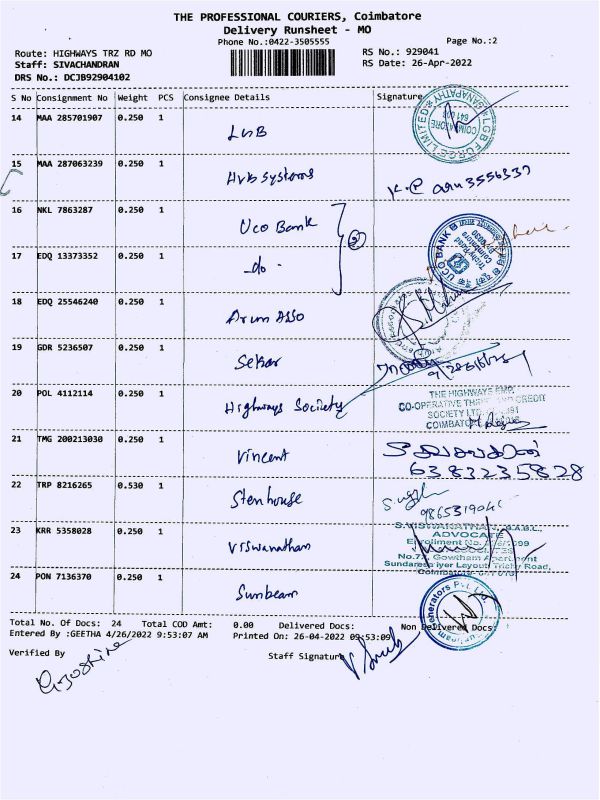 THE PROFESSIONAL COURIERS, Coimbatore
Delivery Runsheet - MO
Phone No.:0422-3505555
Page No.:2
Route: HIGHWAYS TRZ RD MO
RS No.: 929041
Staff: SIVACHANDRAN
RS Date: 26-Apr-2022
DRS No.: DCJB92904102
S No Consignment No Weight PCS Consignee Details Signature
14 MAA 285701907 0.250 1 LGB
LGB FORGE LIMITED GANAPATHY COIMBATORE
15 MAA 287063239 0.250 1 Hvb Systems
16 NKL 7863287 0.250 1 Uco Bank
2
UCO BANK Trichy Road Coimbatore
17 EDQ 13373352 0.250 1 -do-
18 EDQ 25546240 0.250 1 Arun Asso
19 GDR 5236507 0.250 1 Sekar
20 POL 4112114 0.250 1 Highways Society
THE HIGHWAYS EMP.
CO-OPERATIVE THRIFT AND CREDIT
SOCIETY LTD.
COIMBATORE
21 TMG 200213030 0.250 1 Vincent
6383235828
22 TRP 8216265 0.530 1 Stenhouse
23 KRR 5358028 0.250 1 Viswanathan
S.VISWANATHAN, B.A.B.L.,
ADVOCATE
Enrollment No.
No.7, Gowtham Apartment
Sundaresa iyer Layout, Trichy Road,
24 PON 7136370 0.250 1 Sunbeam
Sunbeam Generators Pvt Ltd
Total No. Of Docs: 24 Total COD Amt: 0.00 Delivered Docs: Non Delivered Docs:
Entered By :GEETHA 4/26/2022 9:53:07 AM Printed On: 26-04-2022 09:53:09
Verified By
Staff Signature